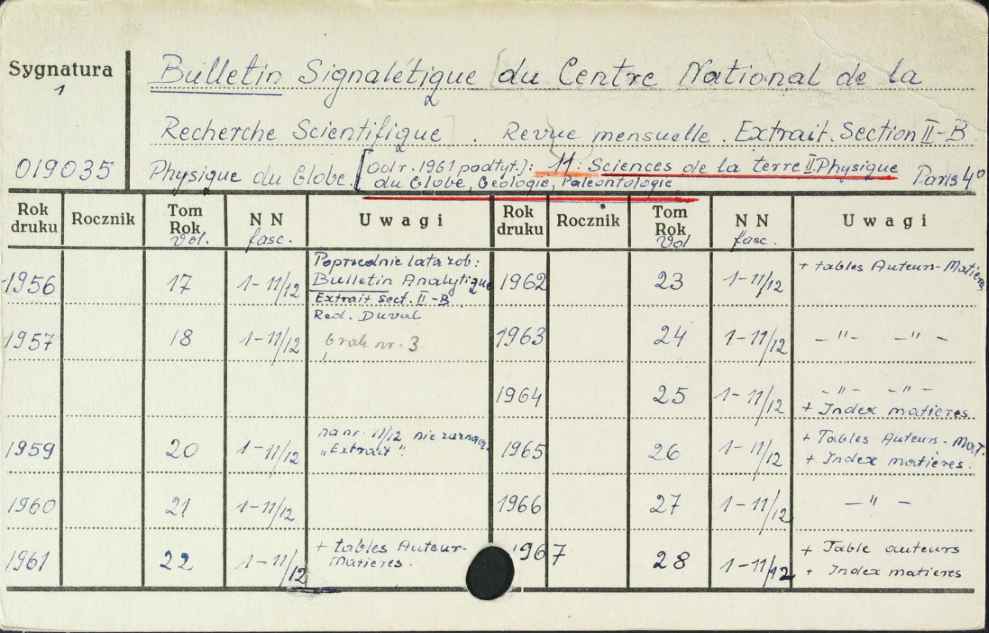 Sygnatura
1
019035
Bulletin Signalétique du Centre National de la
Recherche Scientifique . Revue mensuelle . Extrait. Section II-B
Physique du Globe. [Od r. 1961 podtyt.]: 11: Sciences de la terre II. Physique
du Globe, Géologie, Paléontologie
Paris 4°
Rok druku Rocznik Tom Rok Vol. NN fasc. Uwagi Rok druku Rocznik Tom Rok Vol NN fasc. Uwagi
1956 17 1-11/12 Poprzednie lata zob:
Bulletin Analytique
Extrait Sect. II-B
Red. Duval
1962 23 1-11/12 + tables Auteurs-Matières
1957 18 1-11/12 brak nr. 3
1963 24 1-11/12 -"- -"-
1964 25 1-11/12 -"- -"-
+ Index matières.
1959 20 1-11/12 na nr. 11/12 nie zaznacz.
"Extrait".
1965 26 1-11/12 + Tables Auteurs-Mat.
+ Index matières.
1960 21 1-11/12
1966 27 1-11/12 -"-
1961 22 1-11/12 + tables Auteur-
matières.
1967 28 1-11/12 + Table auteurs
+ Index matières